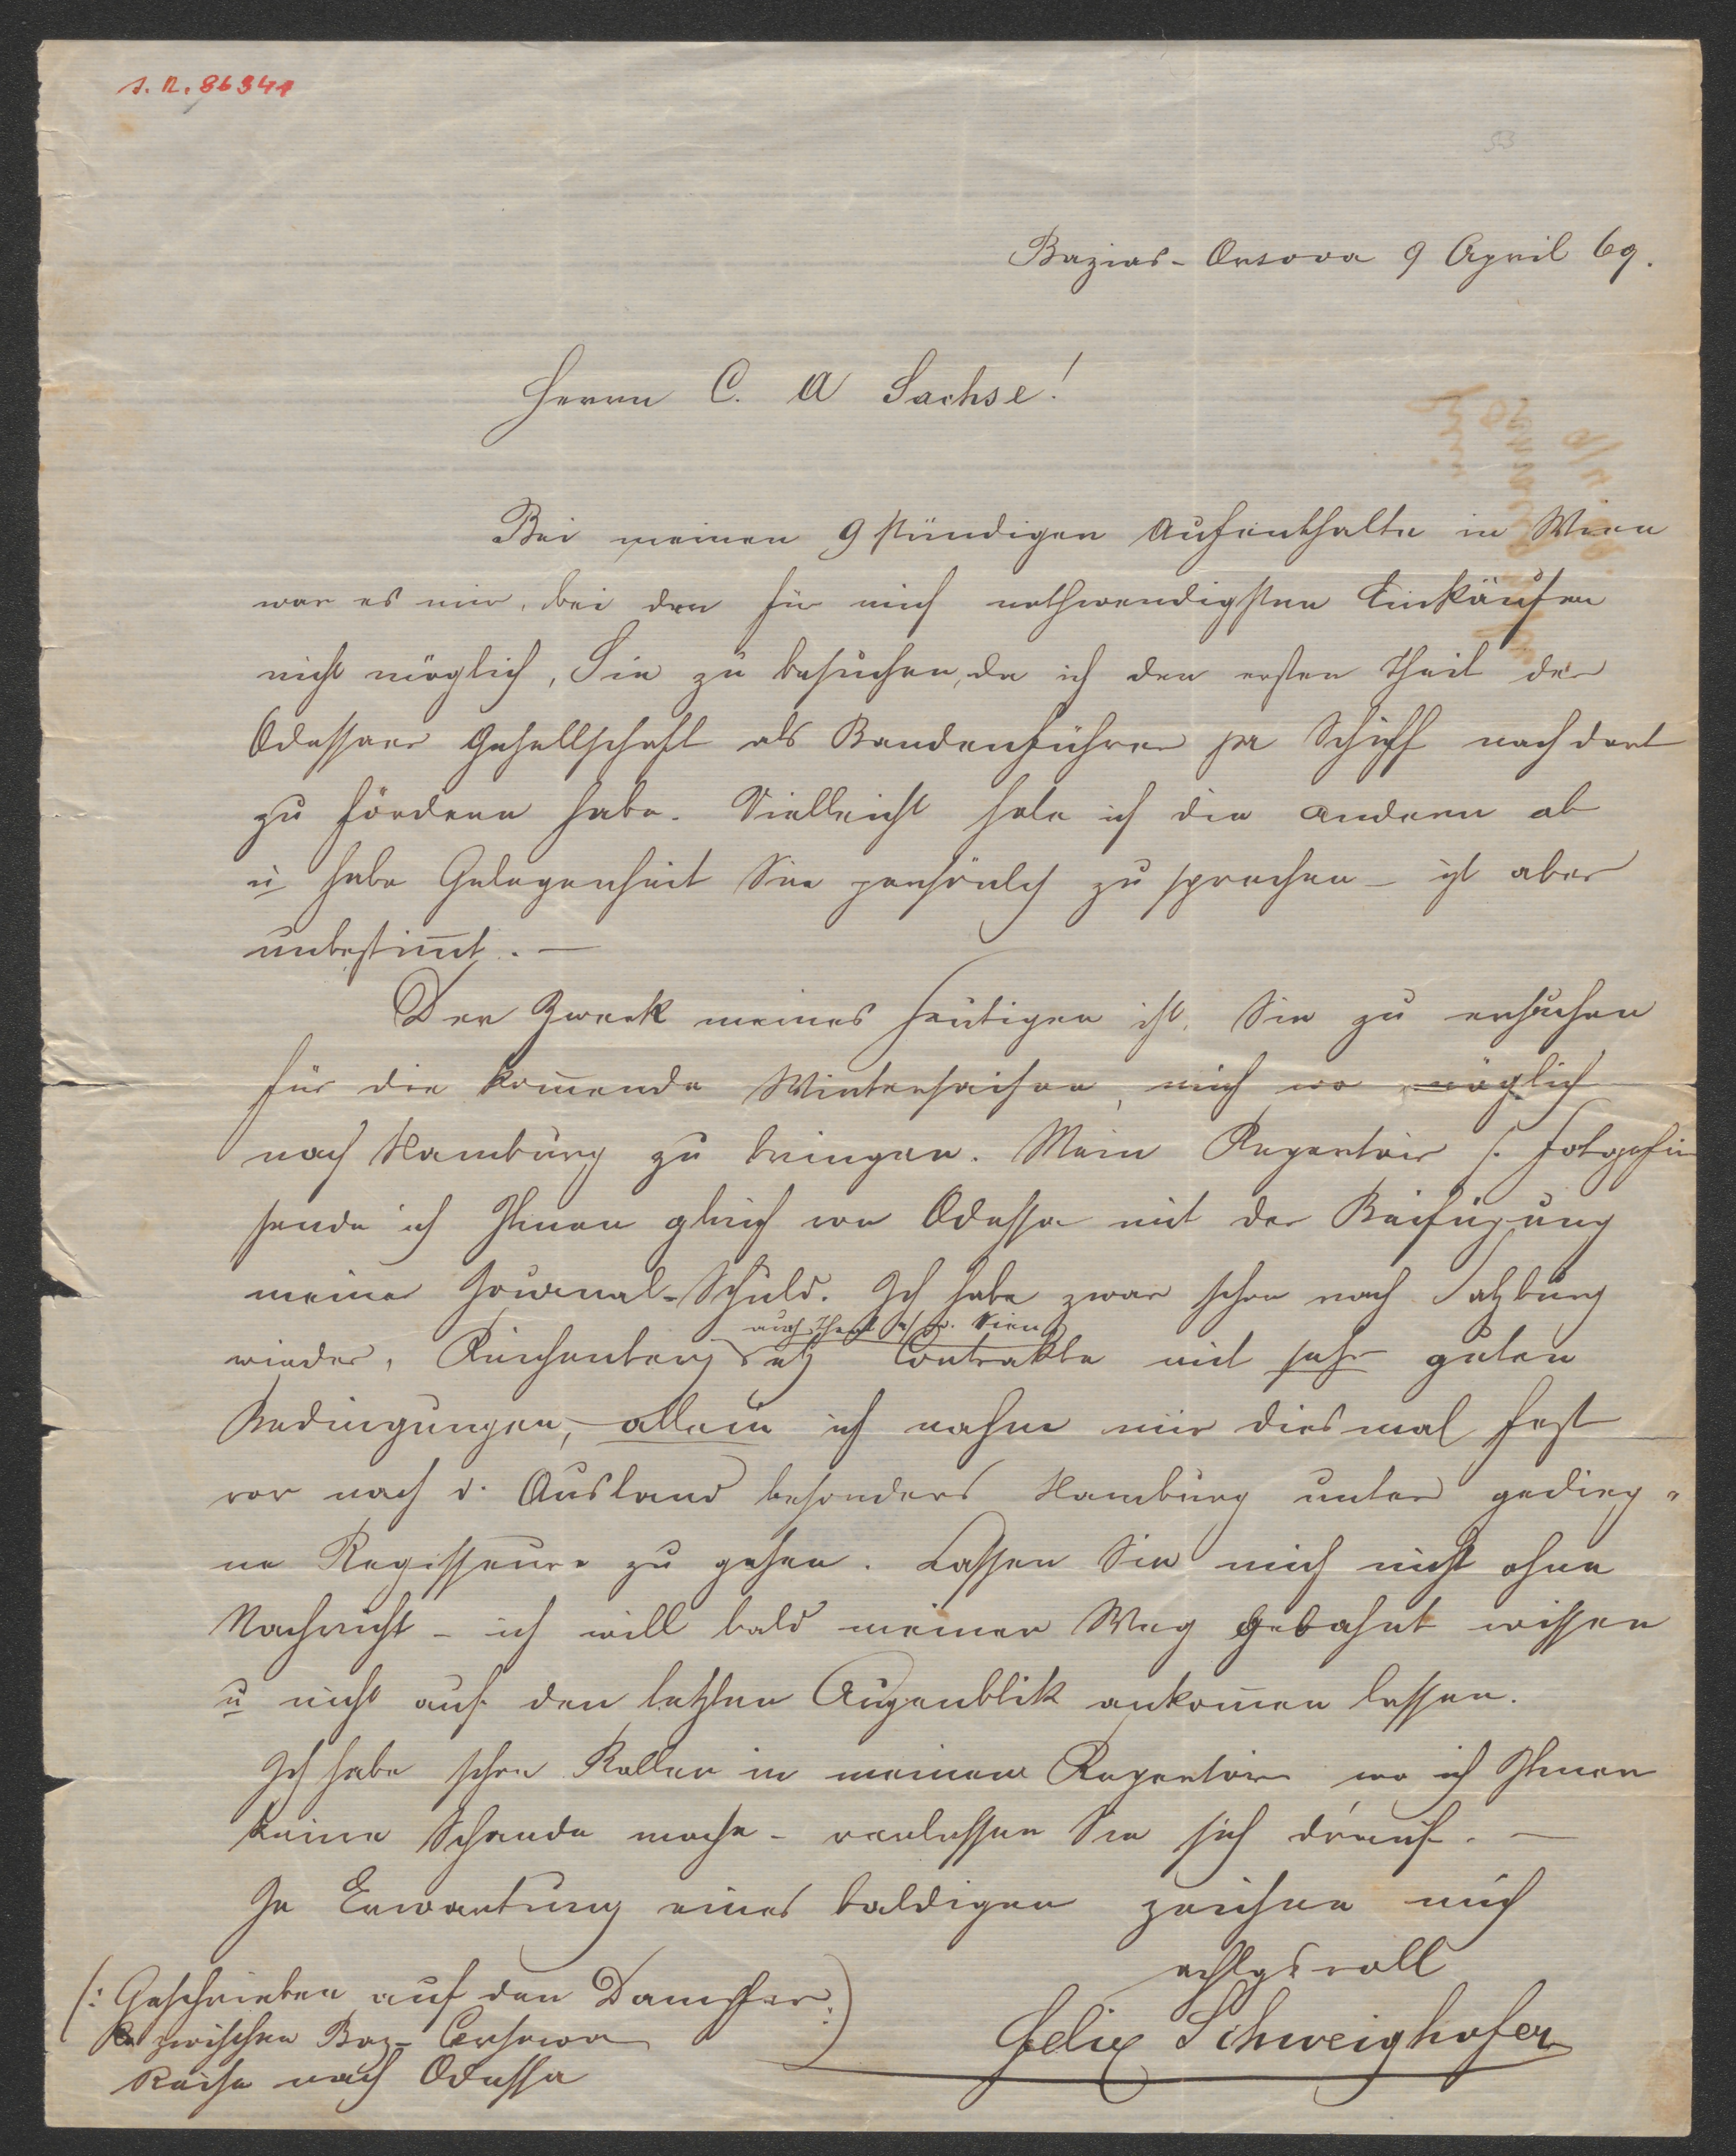 I. N. 86341
53
Bazias - Orsova 9 April 69.
Herrn C. A Sachse!
Bei meinen 9 stündigen Aufenthalte in Wien
war es mir, bei den für mich nothwendigsten Einkäufen
nicht möglich, Sie zu besuchen, da ich den ersten Theil der
Odessaer Gesellschaft als Bandenführer pr Schiff nach dort
zu fördern habe. Vielleicht hole ich die andern ab
u habe Gelegenheit Sie persönlch zu sprechen – ist aber
unbestim̄t. —
Der Zweck meines Heutigen ist, Sie zu ersuchen
für die kom̄ende Wintersaison, mich wo möglich
nach Hamburg zu bringen. Mein Repertoir s. Fotografie
sende ich Ihnen gleich von Odessa mit der Beifügung
meiner Journal-Schuld. Ich habe zwar schon nach Salzburg
auch Theat a/d. Wien
wieder, Reichenberg etz Contrakte mit sehr guten
Bedingungen, – allein ich nahm mir diesmal fest
vor nach d. Ausland besonders Hamburg unter gedieg=
ne Regisseure zu gehen. Lassen Sie mich nicht ohne
Nachricht – ich will bald meinen Weg gebahnt wissen
u nicht auf den letzten Augenblik ankom̄en lassen.
Ich habe schon Rollen in meinem Repertoir wo ich Ihnen
keine Schande mache – verlassen Sie sich d'rauf. —
In Erwartung eines baldigen zeichne mich
achtgsvoll
Felix Schweighofer
(: Geschrieben auf den Dampfer :)
zwischen Baz- Orsowa
Reise nach Odessa